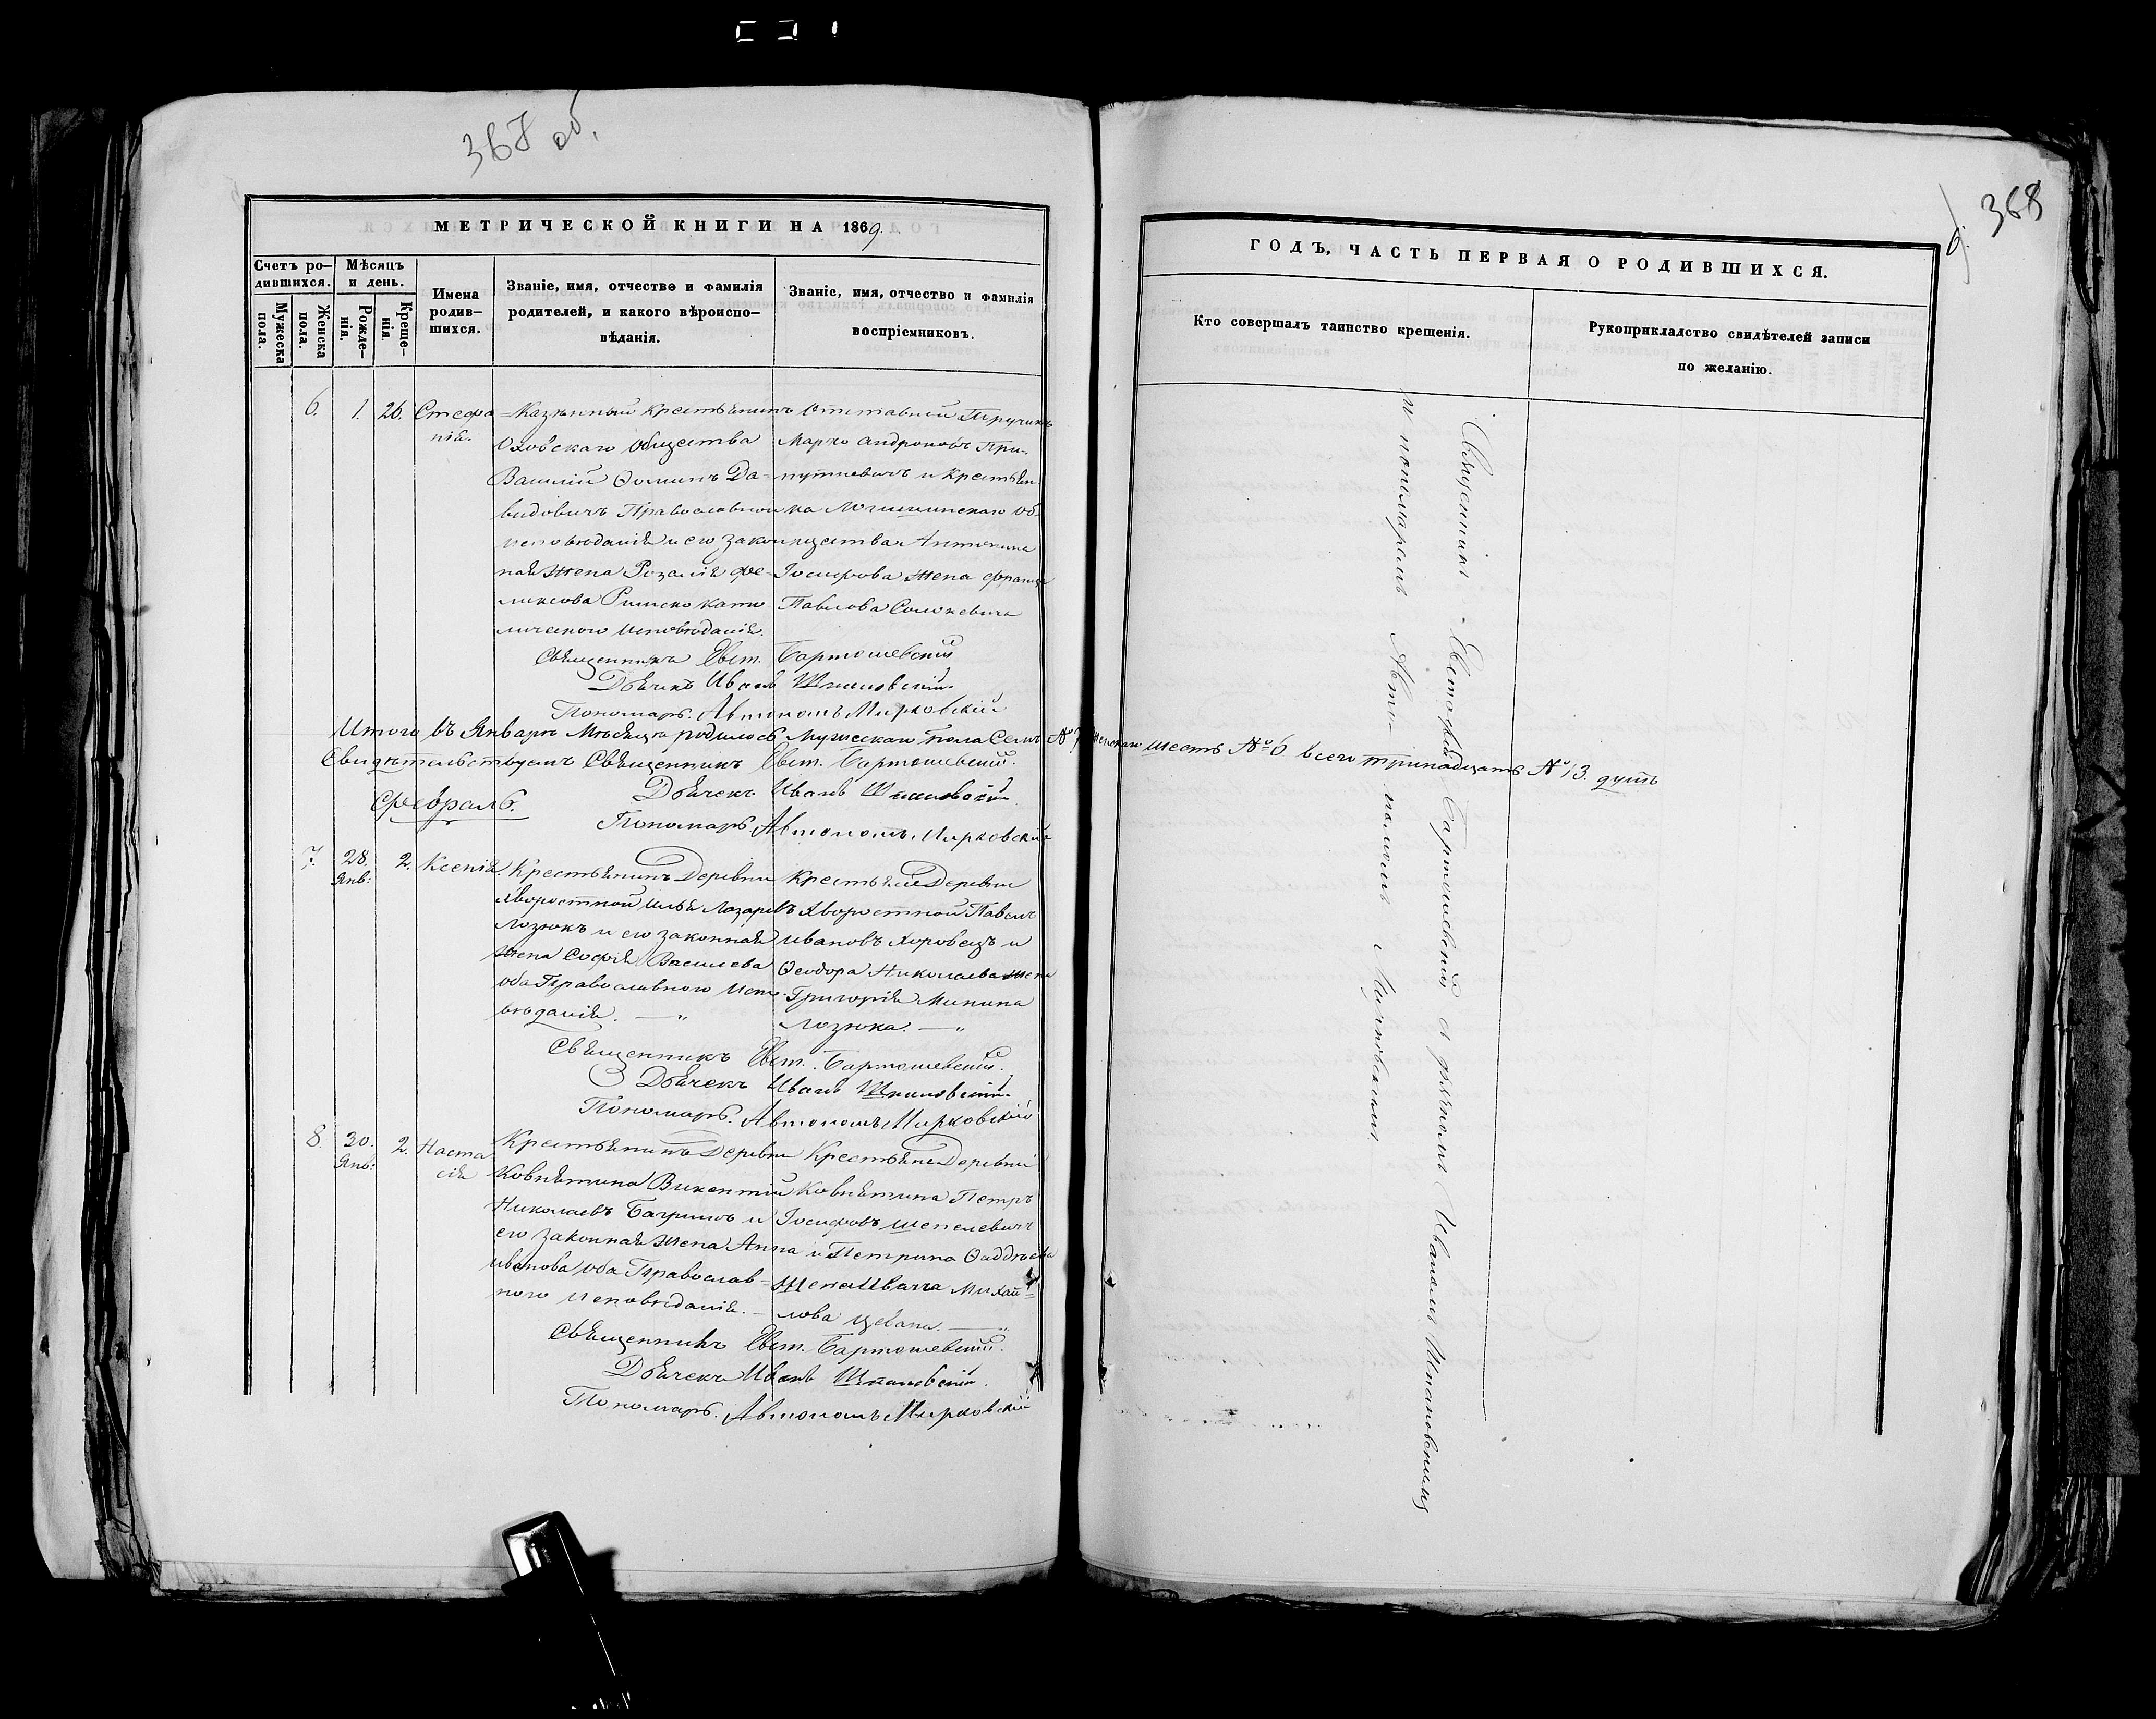 367 об.
МЕТРИЧЕСКОЙ КНИГИ НА 1869.
Счетъ ро-
дившихся.
Мѣсяцъ
и день.
Мужеска
пола.
Женска
пола.
Рожде-
нія.
Креще-
нія.
Имена
родив-
шихся.
Званіе, имя, отчество и фамилія
родителей, и какого вѣроиспо-
вѣданія.
Званіе, имя, отчество и фамилія
воспріемниковъ.
6. 1. 26. Стефа
нія.
Казенный Крестьянинъ
Общества
Василій Ѳоминъ Да-
видовичъ Православнои
исповѣданія и его закон
ная жена Розалія Фе-
ликсова Римско Като
лическаго исповѣданія.
Марко Андроновъ При-
путневичъ и Крестьян
ка Логишинскаго об-
щества Антонина
Іосифова жена Франца
Павлова
Священникъ Евст. Бартошевскій
Дьячекъ Иванъ
Пономарь. Автономъ Мирковскій
Итого въ Январѣ Мѣсяцѣ родилось Мужескаго пола Семь № 7 Женскаго шесть № 6 всего тринадцать № 13. душъ
Свидѣтельствуемъ Священникъ Евст. Бартошевскій.
Дьячекъ Иванъ
Февраль.
Пономарь Автономъ Мирковскій
7. 28.
Янв: 2. Ксенія.
Крестьянинъ Деревни
Хворостной Илья Лазаревъ
Лозюкъ и его законная
жена Софія Василева
оба Православного Испо
вѣданія. — „
Крестьяне Деревни
Хворостной Павелъ
Ивановъ Хоровецъ и
Ѳеодора Николаева жена
Григорія Минина
Лозюка. — „
Священникъ Евст. Бартошевскій.
Дьячекъ Иванъ
Пономарь. Автономъ Мирковскій
8. 30.
Янв: 2. Наста
сія
Крестьянинъ Деревни
Ковнятина Викентій
Николаевъ и
его законная жена Анна
Иванова оба Православ=
ного Исповѣданія. —
Крестьяне Деревни
Ковнятина Петръ
Іосифовъ Шепелевичъ
и Петрина Ѳаддѣева
жена Ивана Михай=
лова —
Священникъ Евст. Бартошевскій.
Дьячекъ Иванъ
Пономарь. Автономъ Мирковскій
368
ГОДЪ, ЧАСТЬ ПЕРВАЯ О РОДИВШИХСЯ.
Кто совершалъ таинство крещенія.
Рукоприкладство свидѣтелей записи
по желанію.
Священникъ Евстафій Бартошевскій съ дьячкомъ Иваномъ
и пономаремъ Авто-номомъ Мирковскимъ